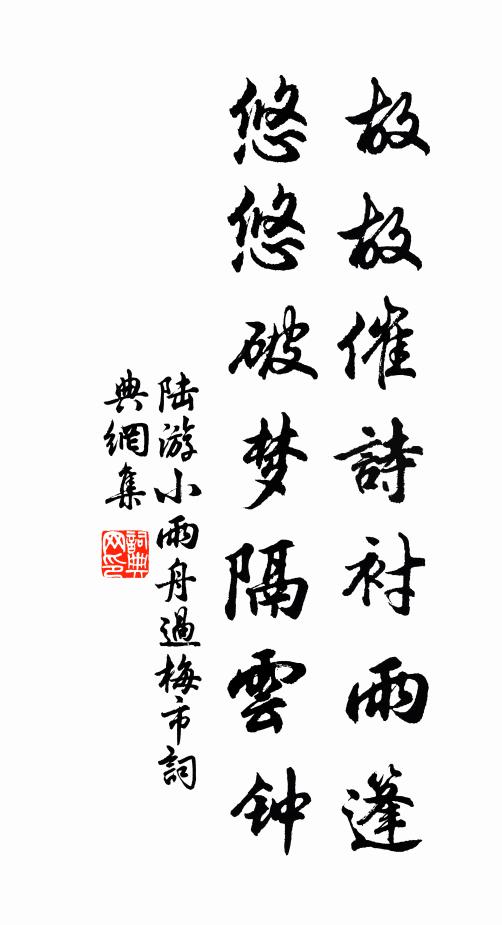 故故催詩衬雨篷
悠悠破梦隔雲钟
陆游小雨舟過梅市詞
典網集
詞典网印